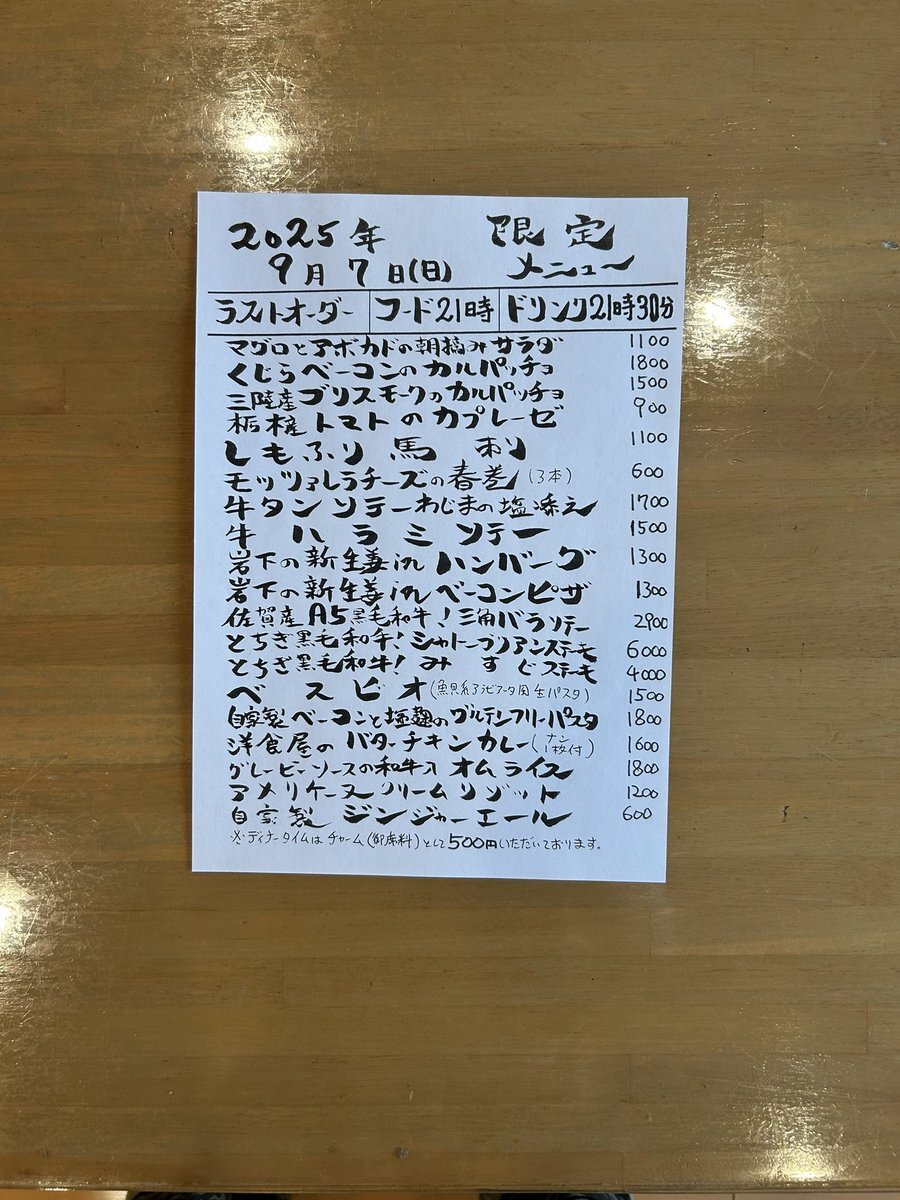 2025年 限定
9月7日(日) メニュー
ラストオーダー フード21時 ドリンク21時30分
マグロとアボカドの朝摘みサラダ 1100
くじらベーコンのカルパッチョ 1800
三陸産ブリスモークのカルパッチョ 1500
栃木産トマトのカプレーゼ 900
しもふり馬刺 1100
モッツァレラチーズの春巻(3本) 600
牛タンソテーわじまの塩添え 1700
牛ハラミソテー 1500
岩下の新生姜inハンバーグ 1300
岩下の新生姜inベーコンピザ 1300
佐賀産A5黒毛和牛!三角バラソテー 2900
とちぎ黒毛和牛!シャトーブリアンステーキ 6000
とちぎ黒毛和牛!みすじステーキ 4000
ベスビオ(魚貝系アラビアータ風生パスタ) 1500
自家製ベーコンと塩麹のグルテンフリーパスタ 1800
洋食屋のバターチキンカレー(ナン1枚付) 1600
グレービーソースの和牛入オムライス 1800
アメリケーヌクリームリゾット 1200
自家製ジンジャーエール 600
※ディナータイムはチャーム(御席料)として500円いただいております。